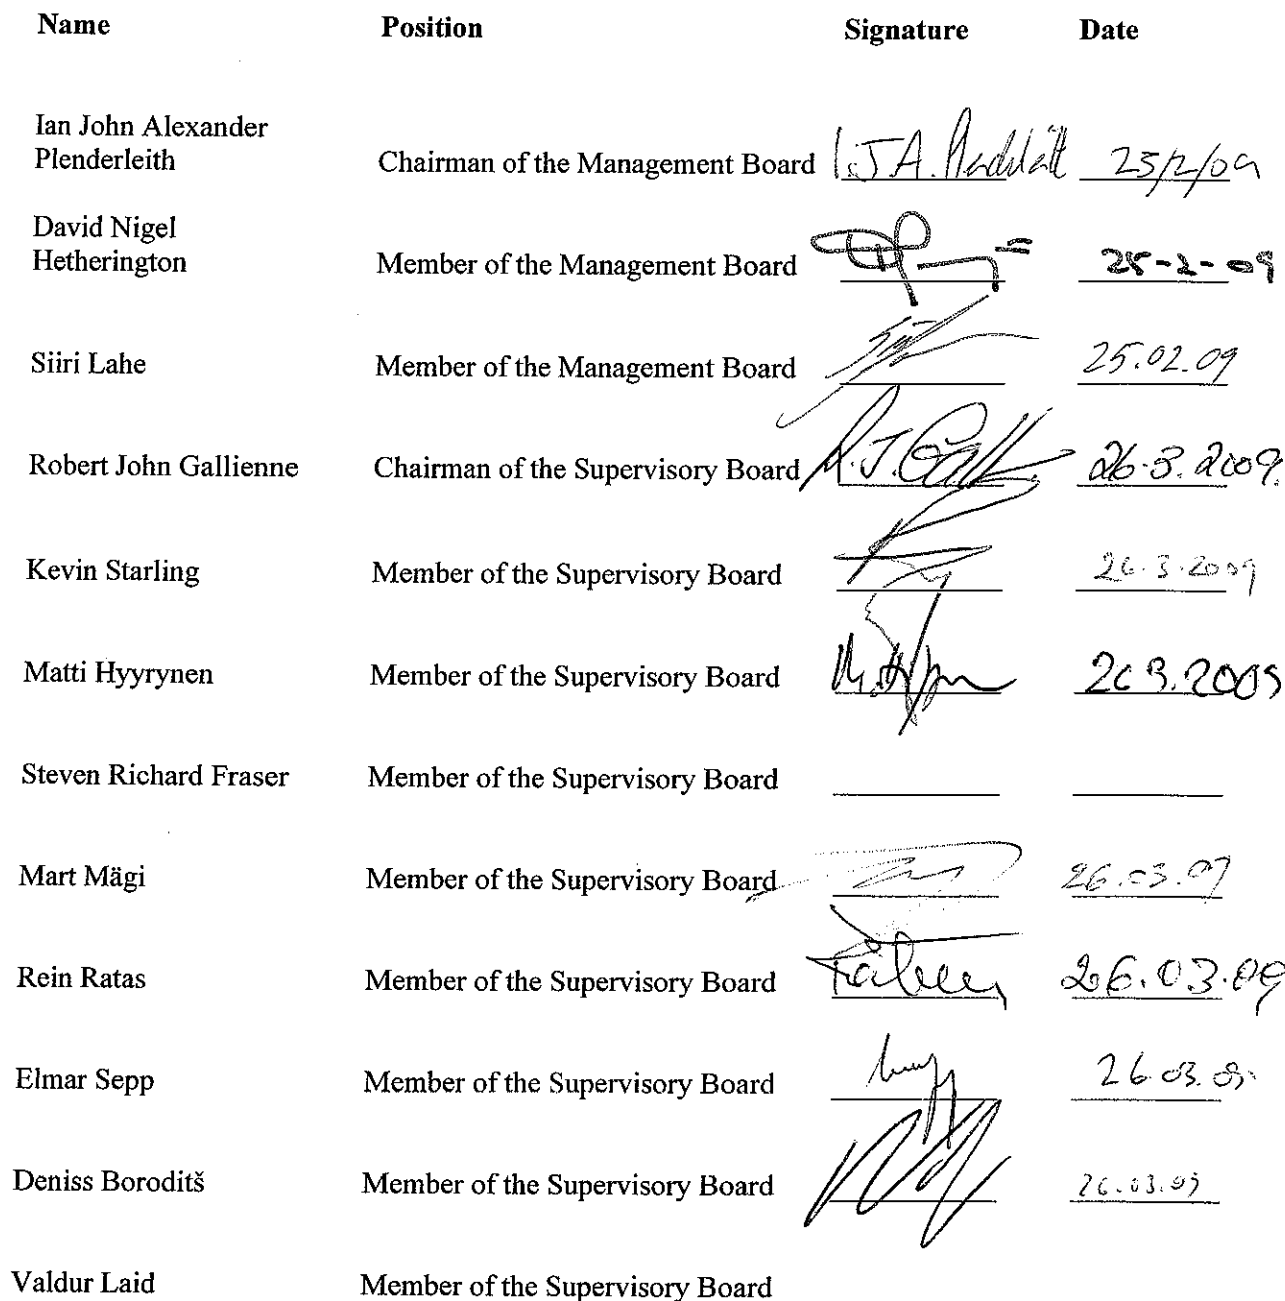 Name Position Signature Date
Ian John Alexander
Plenderleith Chairman of the Management Board I.J.A. 25/2/09
David Nigel
Hetherington Member of the Management Board 25-2-09
Siiri Lahe Member of the Management Board 25.02.09
Robert John Gallienne Chairman of the Supervisory Board R.J. 26.3.2009.
Kevin Starling Member of the Supervisory Board 26.3.2009
Matti Hyyrynen Member of the Supervisory Board 26 3.2009
Steven Richard Fraser Member of the Supervisory Board
Mart Mägi Member of the Supervisory Board 26.03.09
Rein Ratas Member of the Supervisory Board 26.03.09
Elmar Sepp Member of the Supervisory Board 26.03.09.
Deniss Boroditš Member of the Supervisory Board 26.03.09
Valdur Laid Member of the Supervisory Board